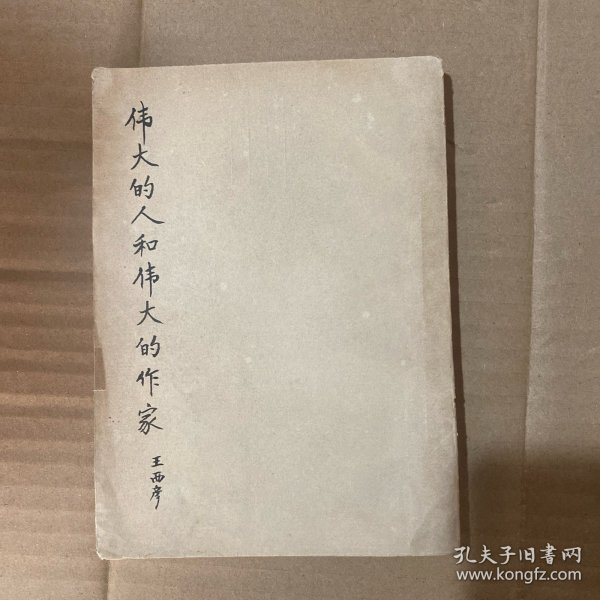 伟大的人和伟大的作家
王西彦
孔夫子旧書网
www.kongfz.com